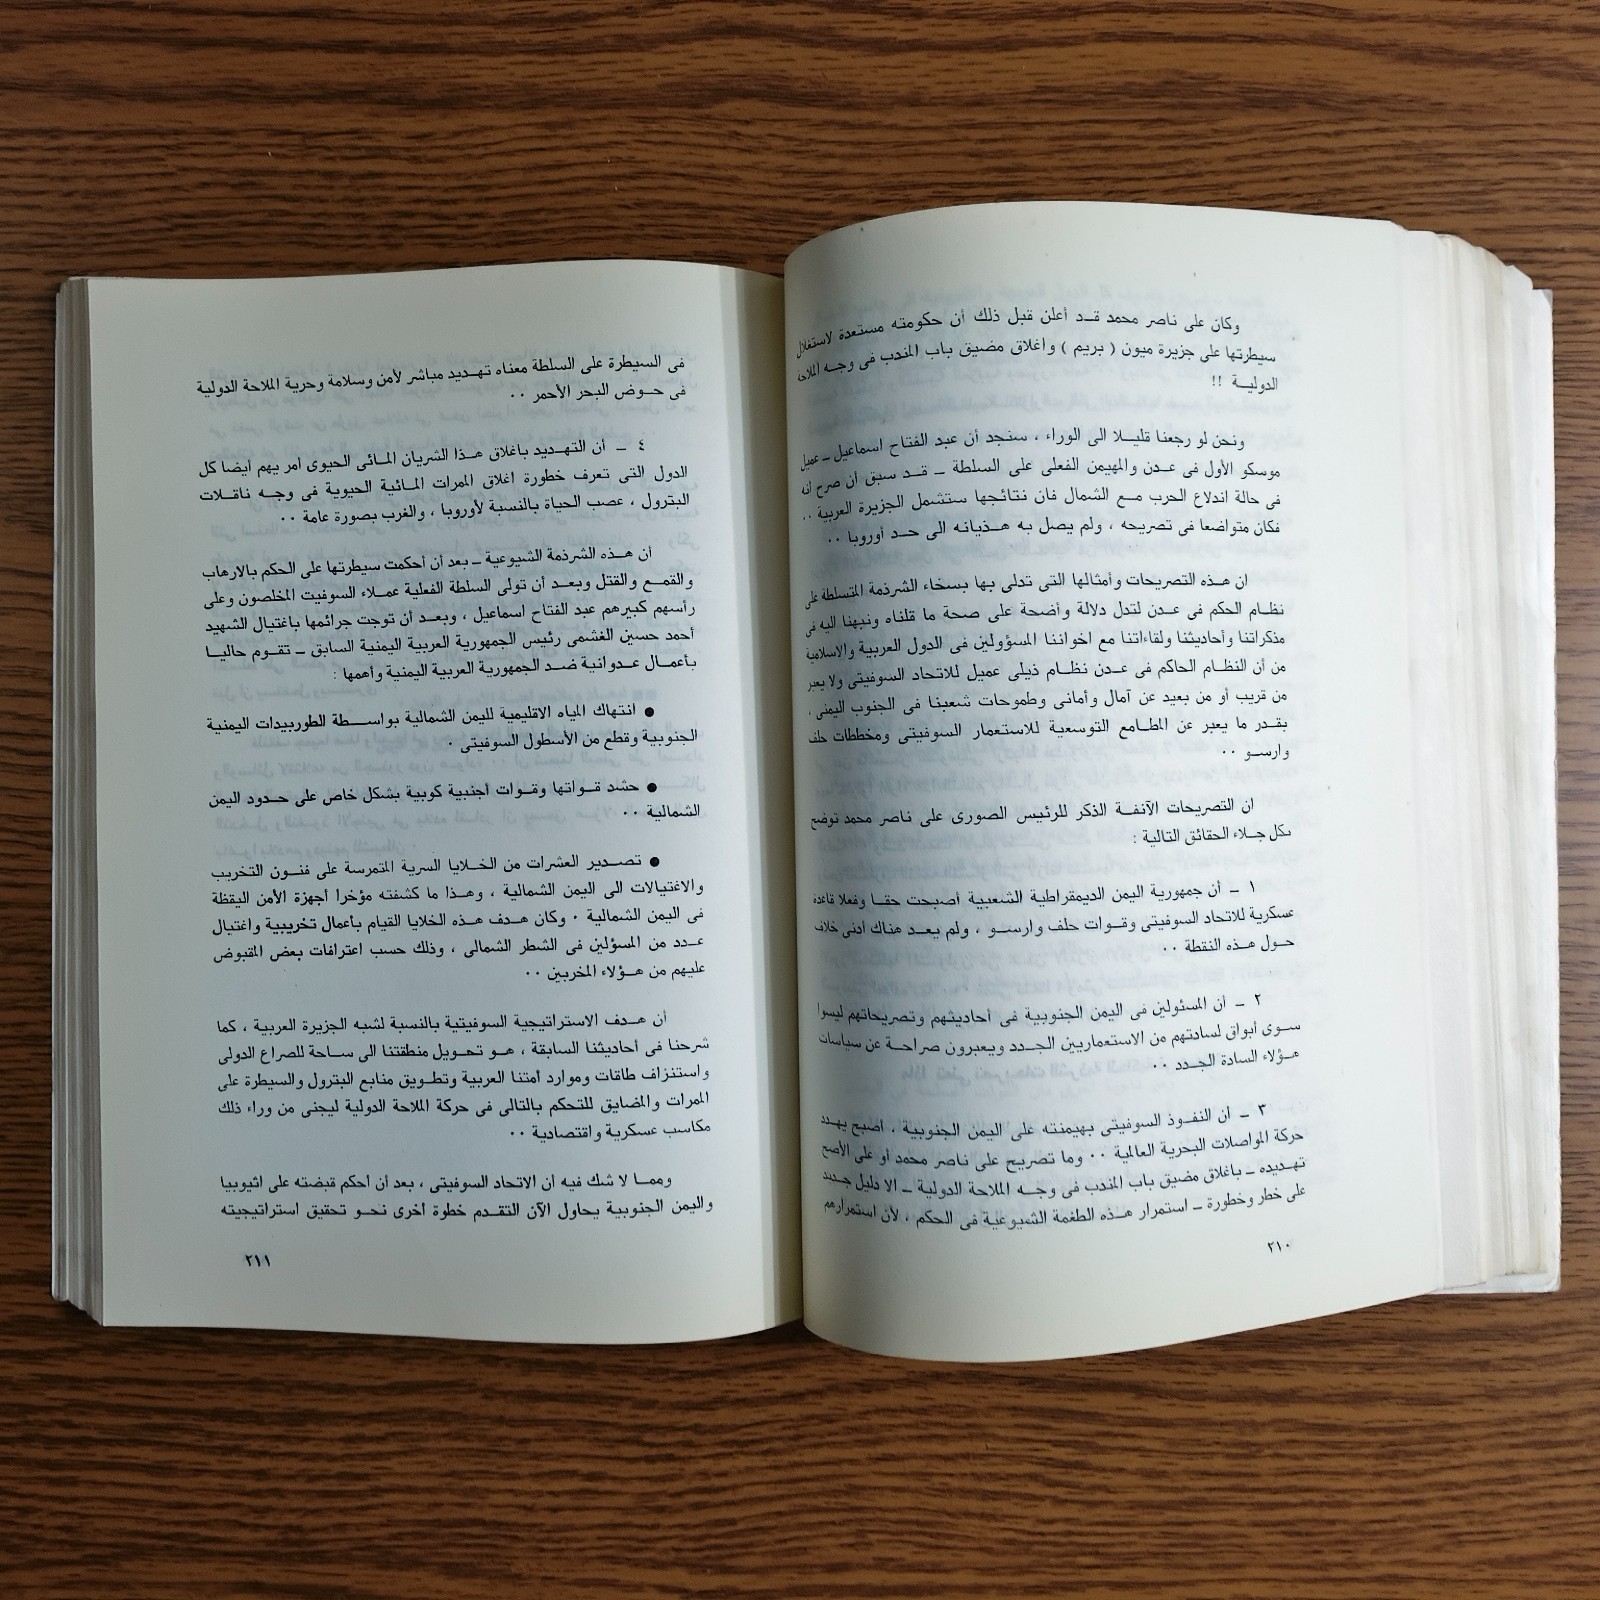 وكان على ناصر محمد قد أعلن قبل ذلك أن حكومته مستعدة لاستغلال
سيطرتها على جزيرة ميون ( بريم ) واغلاق مضيق باب المندب فى وجه الملاحة
الدولية !!
ونحن لو رجعنا قليلا الى الوراء ، سنجد أن عبد الفتاح اسماعيل ـ عميل
موسكو الأول فى عدن والمهيمن الفعلى على السلطة ـ قد سبق أن صرح انه
فى حالة اندلاع الحرب مع الشمال فان نتائجها ستشمل الجزيرة العربية ..
فكان متواضعا فى تصريحه ، ولم يصل به هذيانه الى حد أوروبا ..
ان هذه التصريحات وأمثالها التى تدلى بها بسخاء الشرذمة المتسلطة على
نظام الحكم فى عدن لتدل دلالة واضحة على صحة ما قلناه ونبهنا اليه فى
مذكراتنا وأحاديثنا ولقاءاتنا مع اخواننا المسؤولين فى الدول العربية والاسلامية
من أن النظام الحاكم فى عدن نظام ذيلى عميل للاتحاد السوفيتى ولا يعبر
من قريب أو من بعيد عن آمال وأمانى وطموحات شعبنا فى الجنوب اليمنى ،
بقدر ما يعبر عن المطامع التوسعية للاستعمار السوفيتى ومخططات حلف
وارسو ..
ان التصريحات الآنفة الذكر للرئيس الصورى على ناصر محمد توضح
بكل جلاء الحقائق التالية :
١ ـ أن جمهورية اليمن الديمقراطية الشعبية أصبحت حقا وفعلا قاعدة
عسكرية للاتحاد السوفيتى وقوات حلف وارسو ، ولم يعد هناك أدنى خلاف
حول هذه النقطة ..
٢ ـ أن المسئولين فى اليمن الجنوبية فى أحاديثهم وتصريحاتهم ليسوا
سوى أبواق لسادتهم من الاستعماريين الجدد ويعبرون صراحة عن سياسات
هؤلاء السادة الجدد ..
٣ ـ أن النفوذ السوفيتى بهيمنته على اليمن الجنوبية ، اصبح يهدد
حركة المواصلات البحرية العالمية .. وما تصريح على ناصر محمد او على الأصح
تهديده ـ باغلاق مضيق باب المندب فى وجه الملاحة الدولية ـ الا دليل جديد
على خطر وخطورة ـ استمرار هذه الطغمة الشيوعية فى الحكم ، لأن استمرارهم
٢١٠
فى السيطرة على السلطة معناه تهديد مباشر لأمن وسلامة وحرية الملاحة الدولية
فى حوض البحر الأحمر ..
٤ ـ أن التهديد باغلاق هذا الشريان المائى الحيوى امر يهم ايضا كل
الدول التى تعرف خطورة اغلاق الممرات المائية الحيوية فى وجه ناقلات
البترول ، عصب الحياة بالنسبة لأوروبا ، والغرب بصورة عامة ..
أن هذه الشرذمة الشيوعية ـ بعد أن أحكمت سيطرتها على الحكم بالارهاب
والقمع والقتل وبعد أن تولى السلطة الفعلية عملاء السوفيت المخلصون وعلى
رأسهم كبيرهم عبد الفتاح اسماعيل ، وبعد أن توجت جرائمها باغتيال الشهيد
أحمد حسين الغشمى رئيس الجمهورية العربية اليمنية السابق ـ تقوم حاليا
بأعمال عدوانية ضد الجمهورية العربية اليمنية وأهمها :
● انتهاك المياه الاقليمية لليمن الشمالية بواسطة الطوربيدات اليمنية
الجنوبية وقطع من الأسطول السوفيتى .
● حشد قواتها وقوات أجنبية كوبية بشكل خاص على حدود اليمن
الشمالية ..
● تصدير العشرات من الخلايا السرية المتمرسة على فنون التخريب
والاغتيالات الى اليمن الشمالية ، وهذا ما كشفته مؤخرا أجهزة الأمن اليقظة
فى اليمن الشمالية . وكان هدف هذه الخلايا القيام بأعمال تخريبية واغتيال
عدد من المسؤلين فى الشطر الشمالى ، وذلك حسب اعترافات بعض المقبوض
عليهم من هؤلاء المخربين ..
أن هدف الاستراتيجية السوفيتية بالنسبة لشبه الجزيرة العربية ، كما
شرحنا فى أحاديثنا السابقة ، هو تحويل منطقتنا الى ساحة للصراع الدولى
واستنزاف طاقات وموارد أمتنا العربية وتطويق منابع البترول والسيطرة على
الممرات والمضايق للتحكم بالتالى فى حركة الملاحة الدولية ليجنى من وراء ذلك
مكاسب عسكرية واقتصادية ..
ومما لا شك فيه ان الاتحاد السوفيتى ، بعد أن أحكم قبضته على اثيوبيا
واليمن الجنوبية يحاول الآن التقدم خطوة اخرى نحو تحقيق استراتيجيته
٢١١